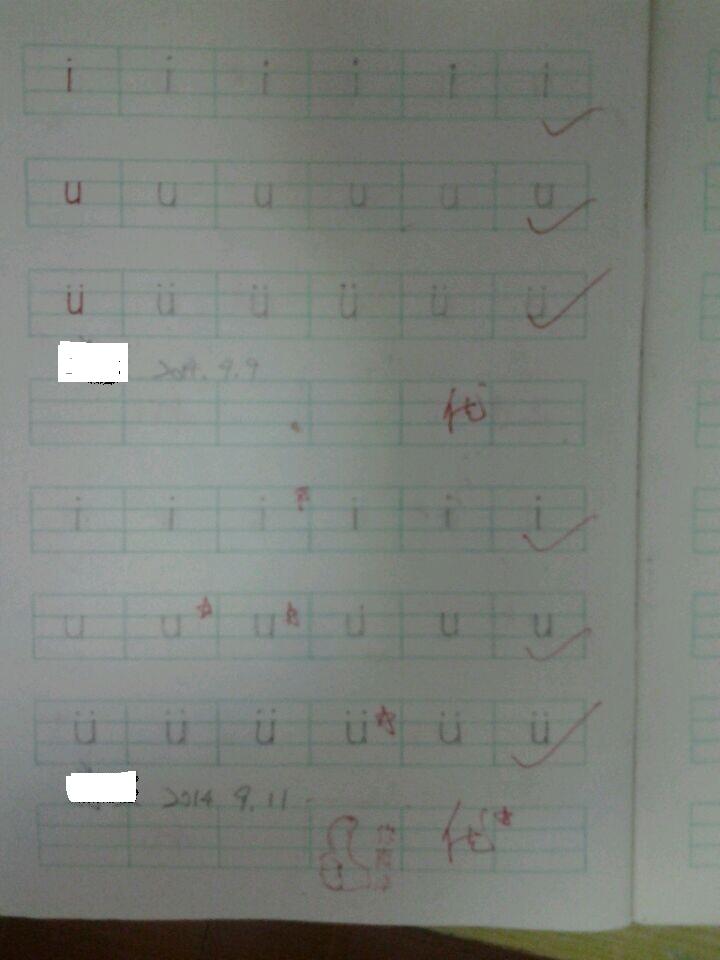 i i i i i i
u u u u u u
ü ü ü ü ü ü
2014.9.9
优
i i i i i i
u u u u u u
ü ü ü ü ü ü
2014 9.11
优